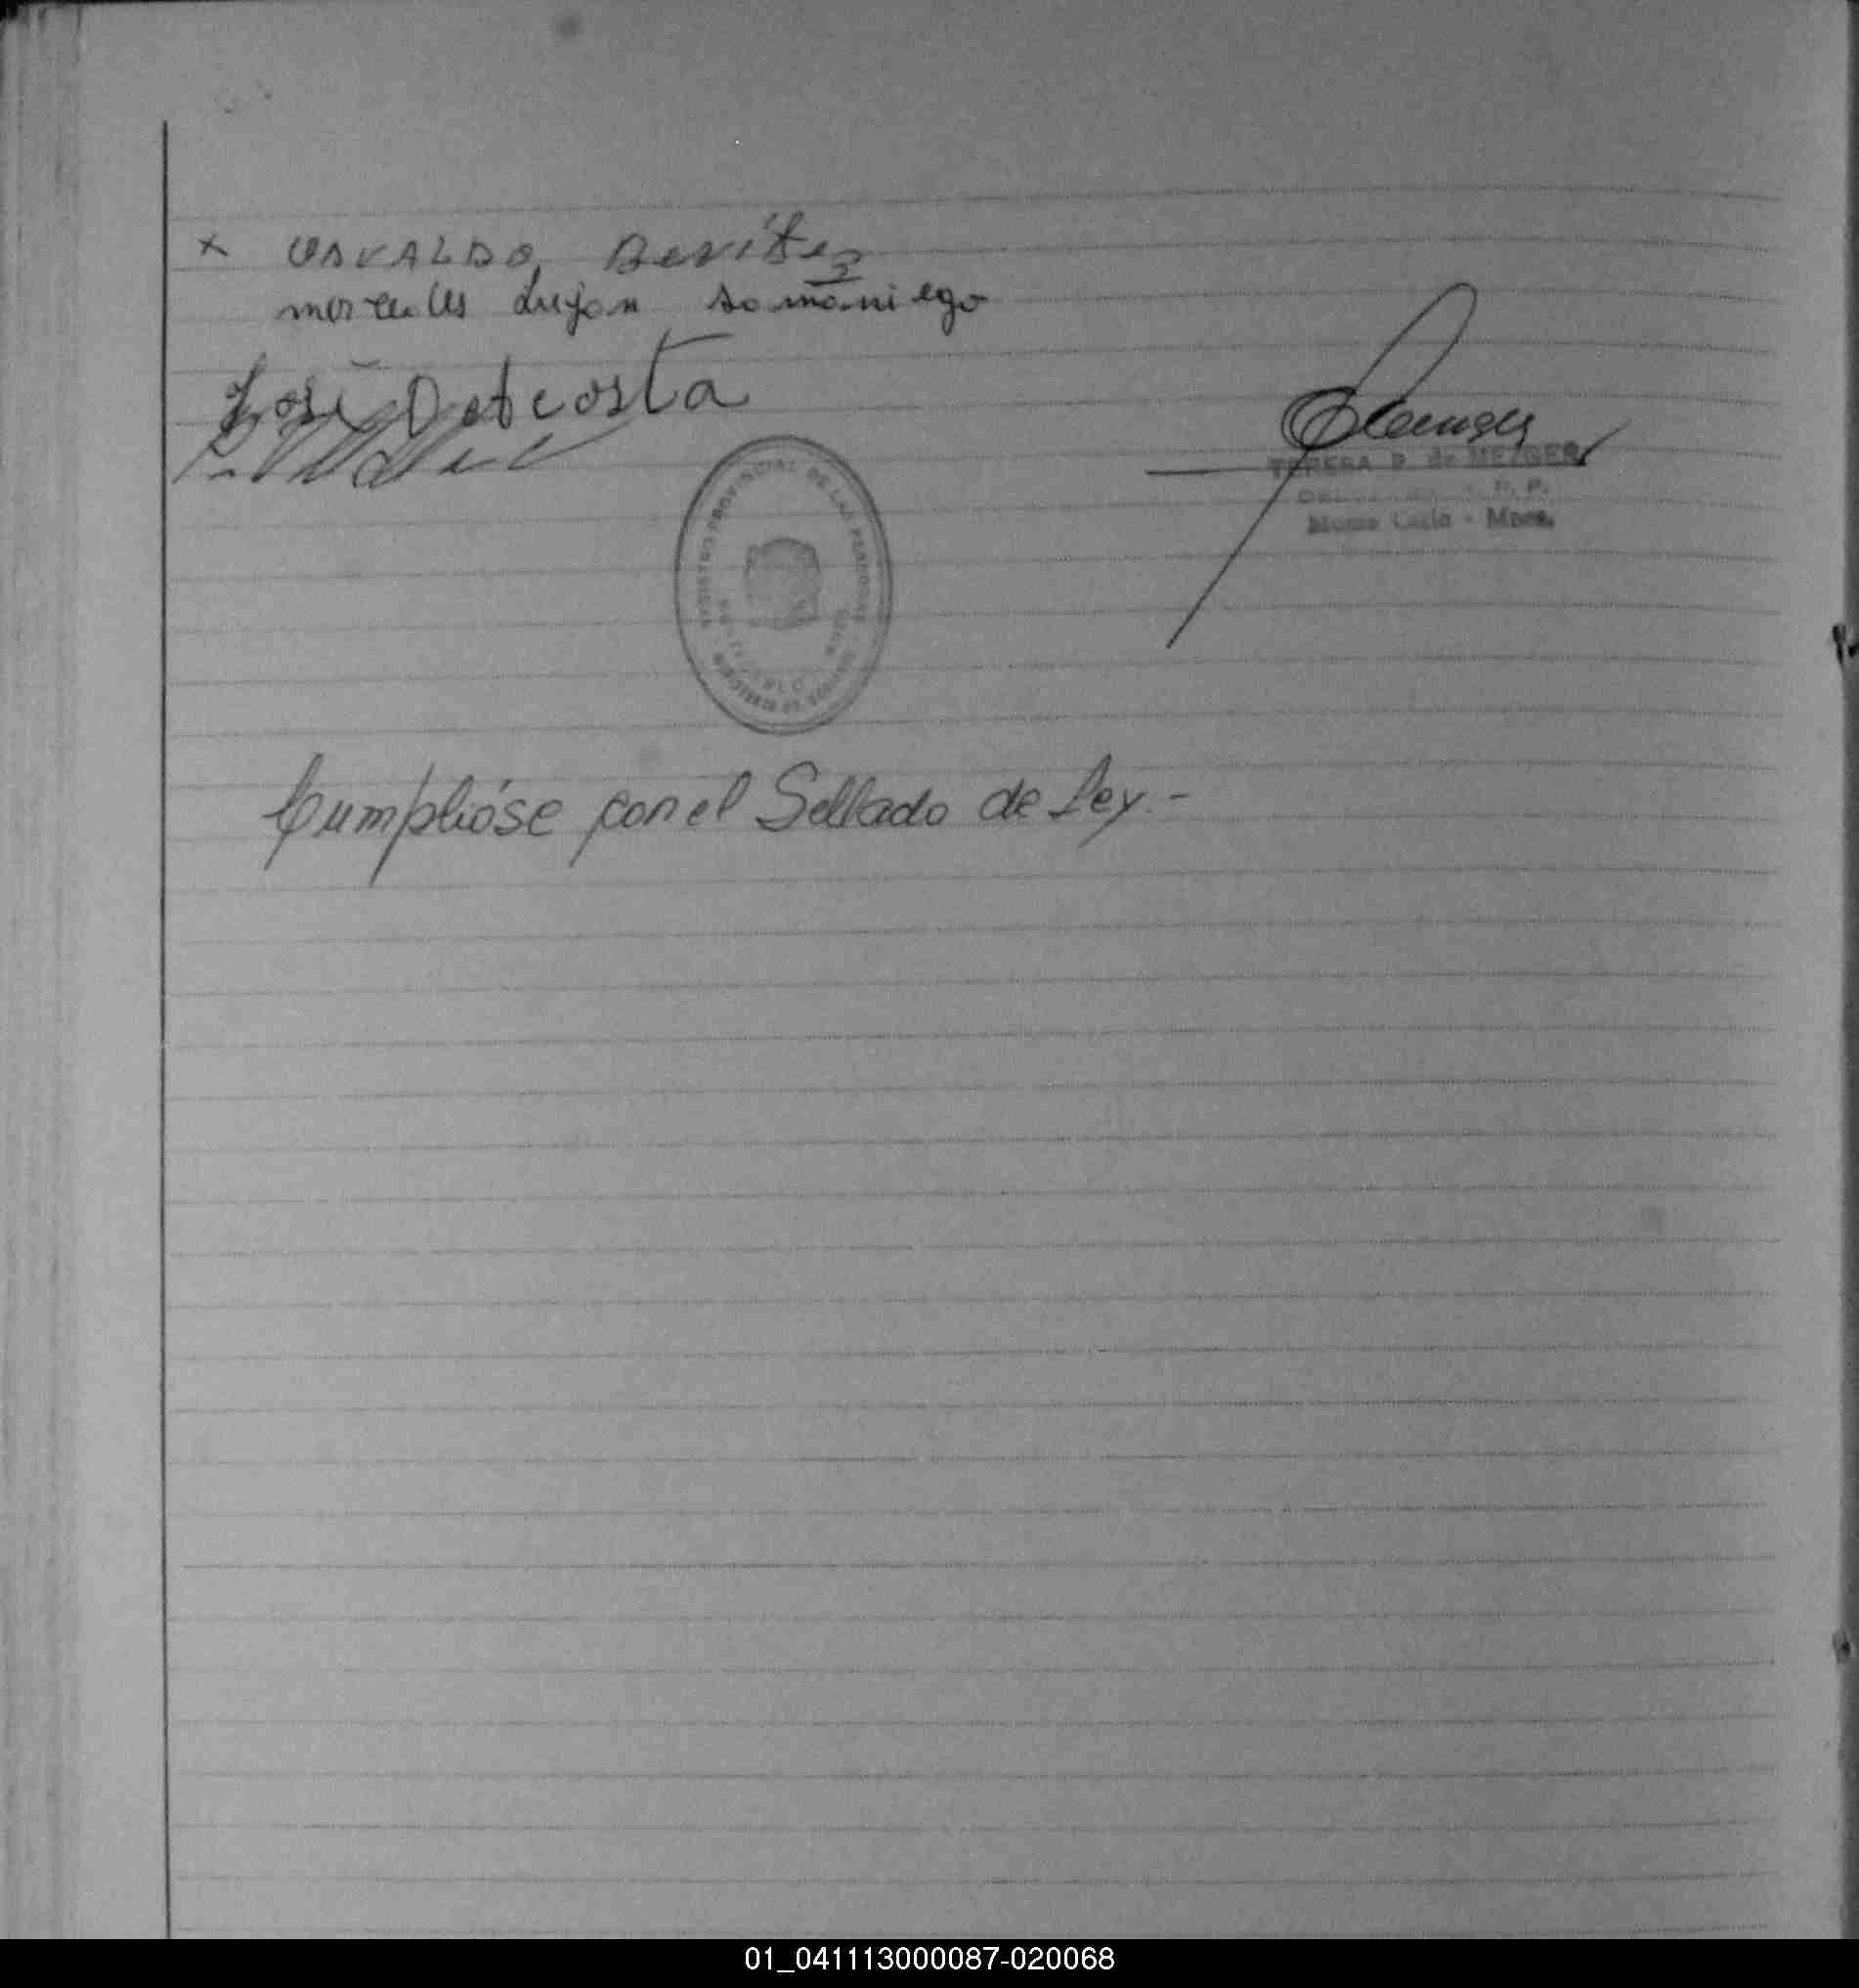 x OSVALDO Benítez
mercedes Lujan samaniego
José Dat costa
TERESA P. de MEZGER
R. P.
Monte Carlo - Mnes.
REGISTRO PROVINCIAL DE LAS PERSONAS
MONTECARLO
Cumplióse con el Sellado de Ley.-
01_041113000087-020068